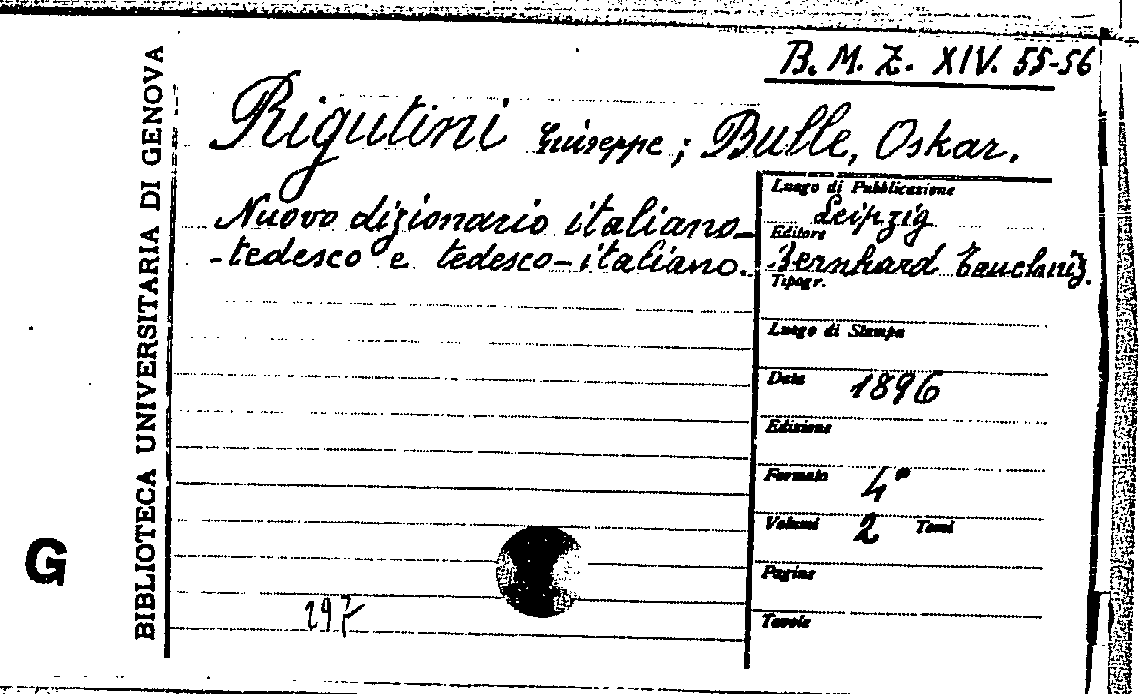 B. M. Z. XIV. 55-56
Rigutini Giuseppe; Bulle, Oskar.
Nuovo dizionario italiano-
-tedesco e tedesco-italiano.
Luogo di Pubblicazione
Leipzig
Editore
Bernhard Tauchniz.
Tipogr.
Luogo di Stampa
Data 1896
Edizione
Formato 4°
Volumi 2 Tomi
Pagine
Tavole
297
BIBLIOTECA UNIVERSITARIA DI GENOVA
G